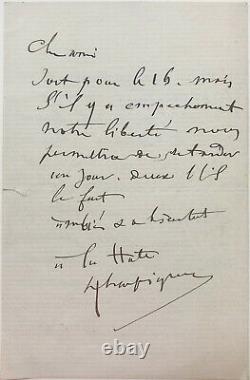 Cher ami
Soit pour le 16. mais
S'il y a empechement
notre liberté nous
permettra de retarder
un jour. deux s'il
le faut
amitiés & a bientot
à la Hate
Harpignies
ebay